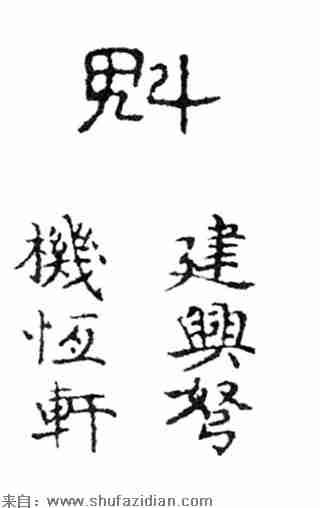 魁
建興弩
機恆軒
来自：www.shufazidian.com